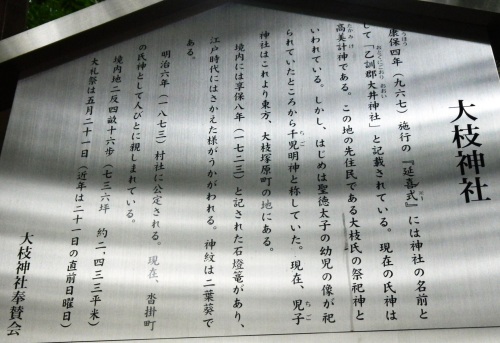 大枝神社
康保四年（九六七）施行の『延喜式』には神社の名前と
して「乙訓郡大井神社」と記載されている。現在の氏神は
高美計神である。この地の先住民である大枝氏の祭祀神と
いわれている。しかし、はじめは聖徳太子の幼児の像が祀
られていたところから千児明神と称していた。現在、児子
神社はこれより東方、大枝塚原町の地にある。
境内には享保八年（一七二三）と記された石燈篭があり、
江戸時代にはさかえた様がうかがわれる。神紋は二葉葵で
ある。
明治六年（一八七三）村社に公定される。現在、沓掛町
の氏神として人びとに親しまれている。
境内地二反四畝十六歩（七三六坪　約二、四三三平米）
大礼祭は五月二十一日（近年は二十一日の直前日曜日）
大枝神社奉賛会